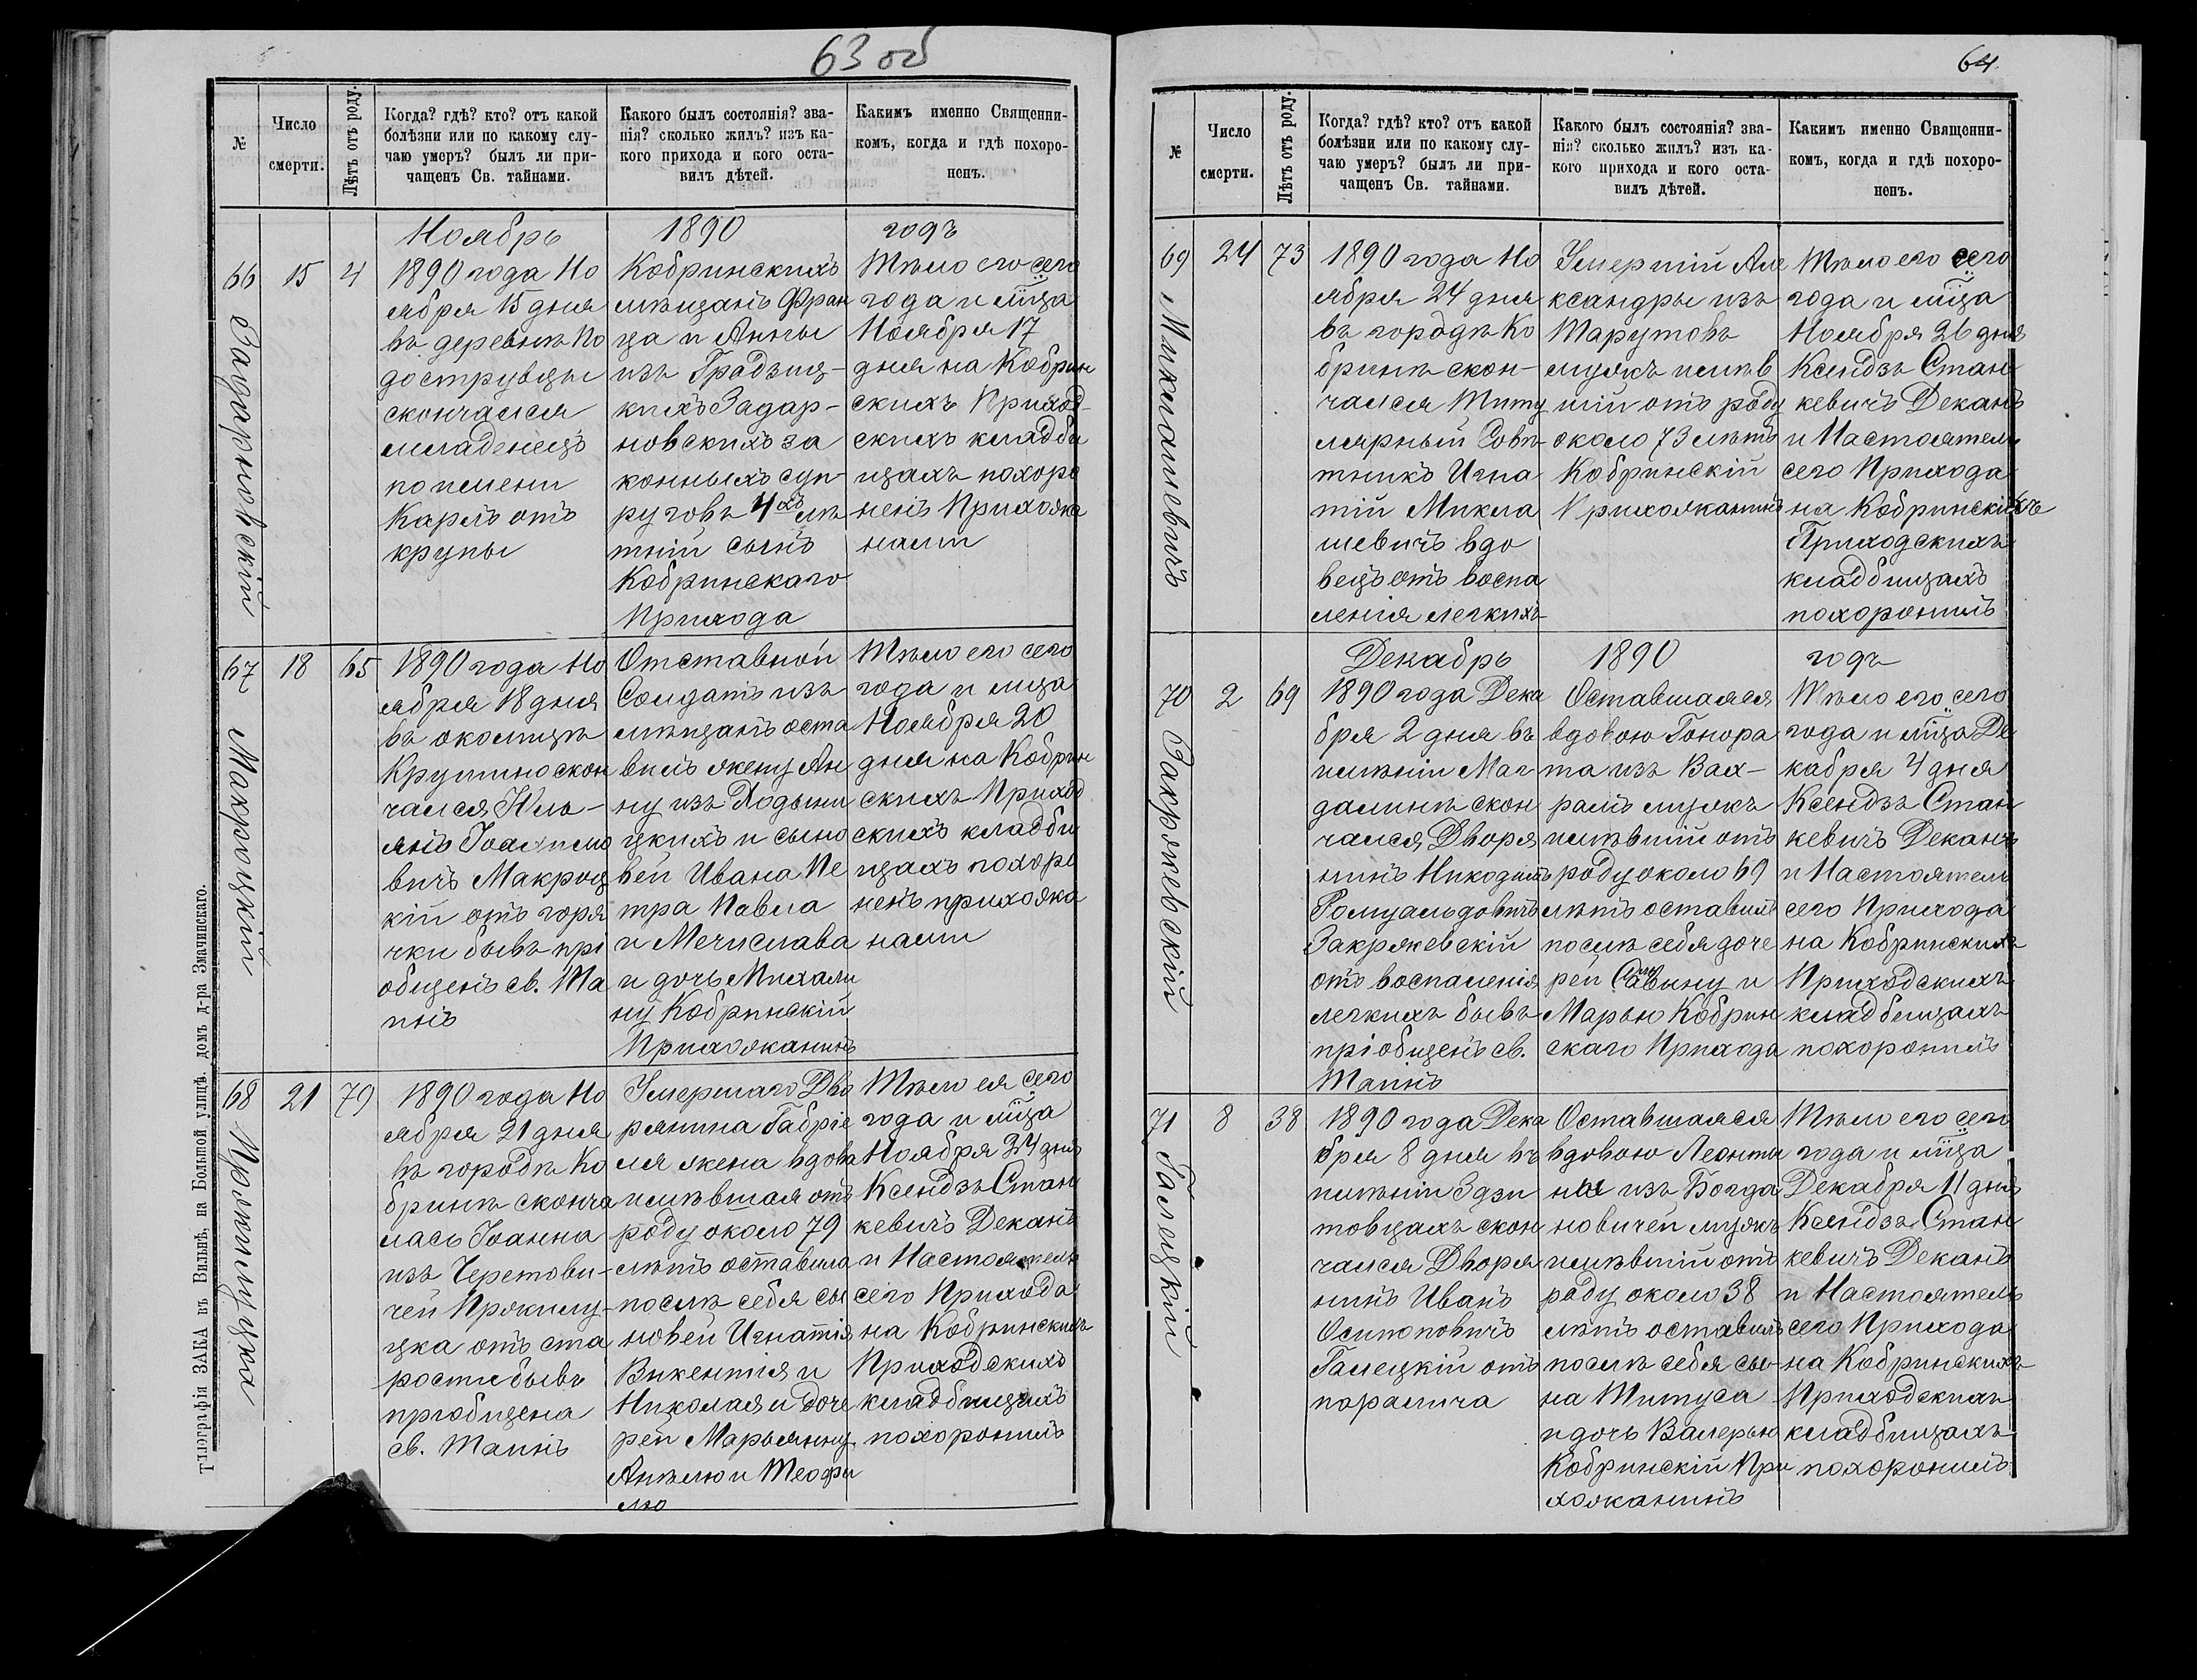 63 об
№
Число
смерти.
Лѣтъ отъ роду.
Когда? гдѣ? кто? отъ какой
болѣзни или по какому слу-
чаю умеръ? былъ ли при-
чащенъ Св. тайнами.
Какого былъ состоянія? зва-
нія? сколько жилъ? изъ ка-
кого прихода и кого оста-
вилъ дѣтей.
Какимъ именно Священни-
комъ, когда и гдѣ похоро-
ненъ.
Ноябрь 1890 годъ
66
Задарновскій
15
4
1890 года Но
ября 15 дня
въ деревнѣ По
дострувцы
скончался
младенецъ
по имени
Карлъ отъ
крупы
Кобринскихъ
мѣщанъ Фран
ца и Анны
изъ Градзиц-
кихъ Задар-
новскихъ за
конныхъ суп-
руговъ 4хъ лѣ
тній сынъ
Кобринскаго
Прихода
Тѣло его сего
года и мца
Ноября 17
дня на Кобрин
скихъ Приход-
скихъ кладби
щахъ похоро
ненъ Прихожа
нами
67
Макроцкій
18
65
1890 года Но
ября 18 дня
въ околицѣ
Крупино скон
чался Юль-
янъ Іоахимо
вичъ Макроц
кій отъ горя
чки бывъ прі
общенъ св. Та
инъ
Отставной
Солдатъ изъ
мѣщанъ оста
вилъ жену Ан
ну изъ Ходыни
цкихъ и сыно
вей Ивана Пе
тра Павла
и Мечислава
и дочь Михали
ну Кобринскій
Прихожанинъ
Тѣло его сего
года и мца
Ноября 20
дня на Кобрин
скихъ Приход
скихъ кладби
щахъ похоро
ненъ прихожа
нами
68
Пржилуцка
21
79
1890 года Но
ября 21 дня
въ городѣ Ко
бринѣ сконча
лась Іоанна
изъ Черетови-
чей Пржилу-
цка отъ ста
рости бывъ
пріобщена
св. Таинъ
Умершаго Дво
рянина Габріе
ля жена вдова
имѣвшая отъ
роду около 79
лѣтъ оставила
послѣ себя сы
новей Игнатія
Викентія и
Николая и доче
рей Марьянну
Анѣлю и Теофи
лю
Тѣло ея сего
года и мца
Ноября 24 дня
Ксендзъ Стан
кевичъ Деканъ
и Настоятель
сего Прихода
на Кобринскихъ
Приходскихъ
кладбищахъ
похоронилъ
Типографія ЗАКА въ Вильнѣ, на Большой улицѣ, домъ д-ра Значинскаго.
64
№
Число
смерти.
Лѣтъ отъ роду.
Когда? гдѣ? кто? отъ какой
болѣзни или по какому слу-
чаю умеръ? былъ ли при-
чащенъ Св. тайнами.
Какого былъ состоянія? зва-
нія? сколько жилъ? изъ ка-
кого прихода и кого оста-
вилъ дѣтей.
Какимъ именно Священни-
комъ, когда и гдѣ похоро-
ненъ.
69
Миклашевичъ
24
73
1890 года Но
ября 24 дня
въ городѣ Ко
бринѣ скон-
чался Титу
лярный Совѣ-
тникъ Игна
тій Микла
шевичъ вдо
вецъ отъ воспа
ленія легкихъ
Умершій Але
ксандры изъ
Тарутовъ
мужъ имѣв
шій отъ роду
около 73 лѣтъ
Кобринскій
Прихожанинъ
Тѣло его сего
года и мца
Ноября 26 дня
Ксендзъ Стан
кевичъ Деканъ
и Настоятель
сего Прихода
на Кобринскихъ
Приходскихъ
кладбищахъ
похоронилъ
Декабрь 1890 годъ
70
Закржевскій
2
69
1890 года Дека
бря 2 дня въ
имѣніи Маг
далинѣ скон
чался Дворя
нинъ Никодимъ
Ромуальдовичъ
Закржевскій
отъ воспаленія
легкихъ бывъ
пріобщенъ св.
Таинъ
Оставшаяся
вдовою Гонора
та изъ Вах-
рамъ мужъ
имѣвшій отъ
роду около 69
лѣтъ оставилъ
послѣ себя доче
рей и
Марью Кобрин
скаго Прихода
Тѣло его сего
года и мца Де
кабря 4 дня
Ксендзъ Стан
кевичъ Деканъ
и Настоятель
сего Прихода
на Кобринскихъ
Приходскихъ
кладбищахъ
похоронилъ
71
Галецкій
8
38
1890 года Дека
бря 8 дня въ
имѣніи Эдзи
товцахъ скон
чался Дворя
нинъ Иванъ
Осиповичъ
Галецкій отъ
паралича
Оставшаяся
вдовою Леонти
на изъ Богда
новичей мужъ
имѣвшій отъ
роду около 38
лѣтъ оставилъ
послѣ себя сы-
на Титуса
и дочь Валерью
Кобринскій При
хожанинъ
Тѣло его сего
года и мца
Декабря 11 дня
Ксендзъ Стан
кевичъ Деканъ
и Настоятель
сего Прихода
на Кобринскихъ
Приходскихъ
кладбищахъ
похоронилъ